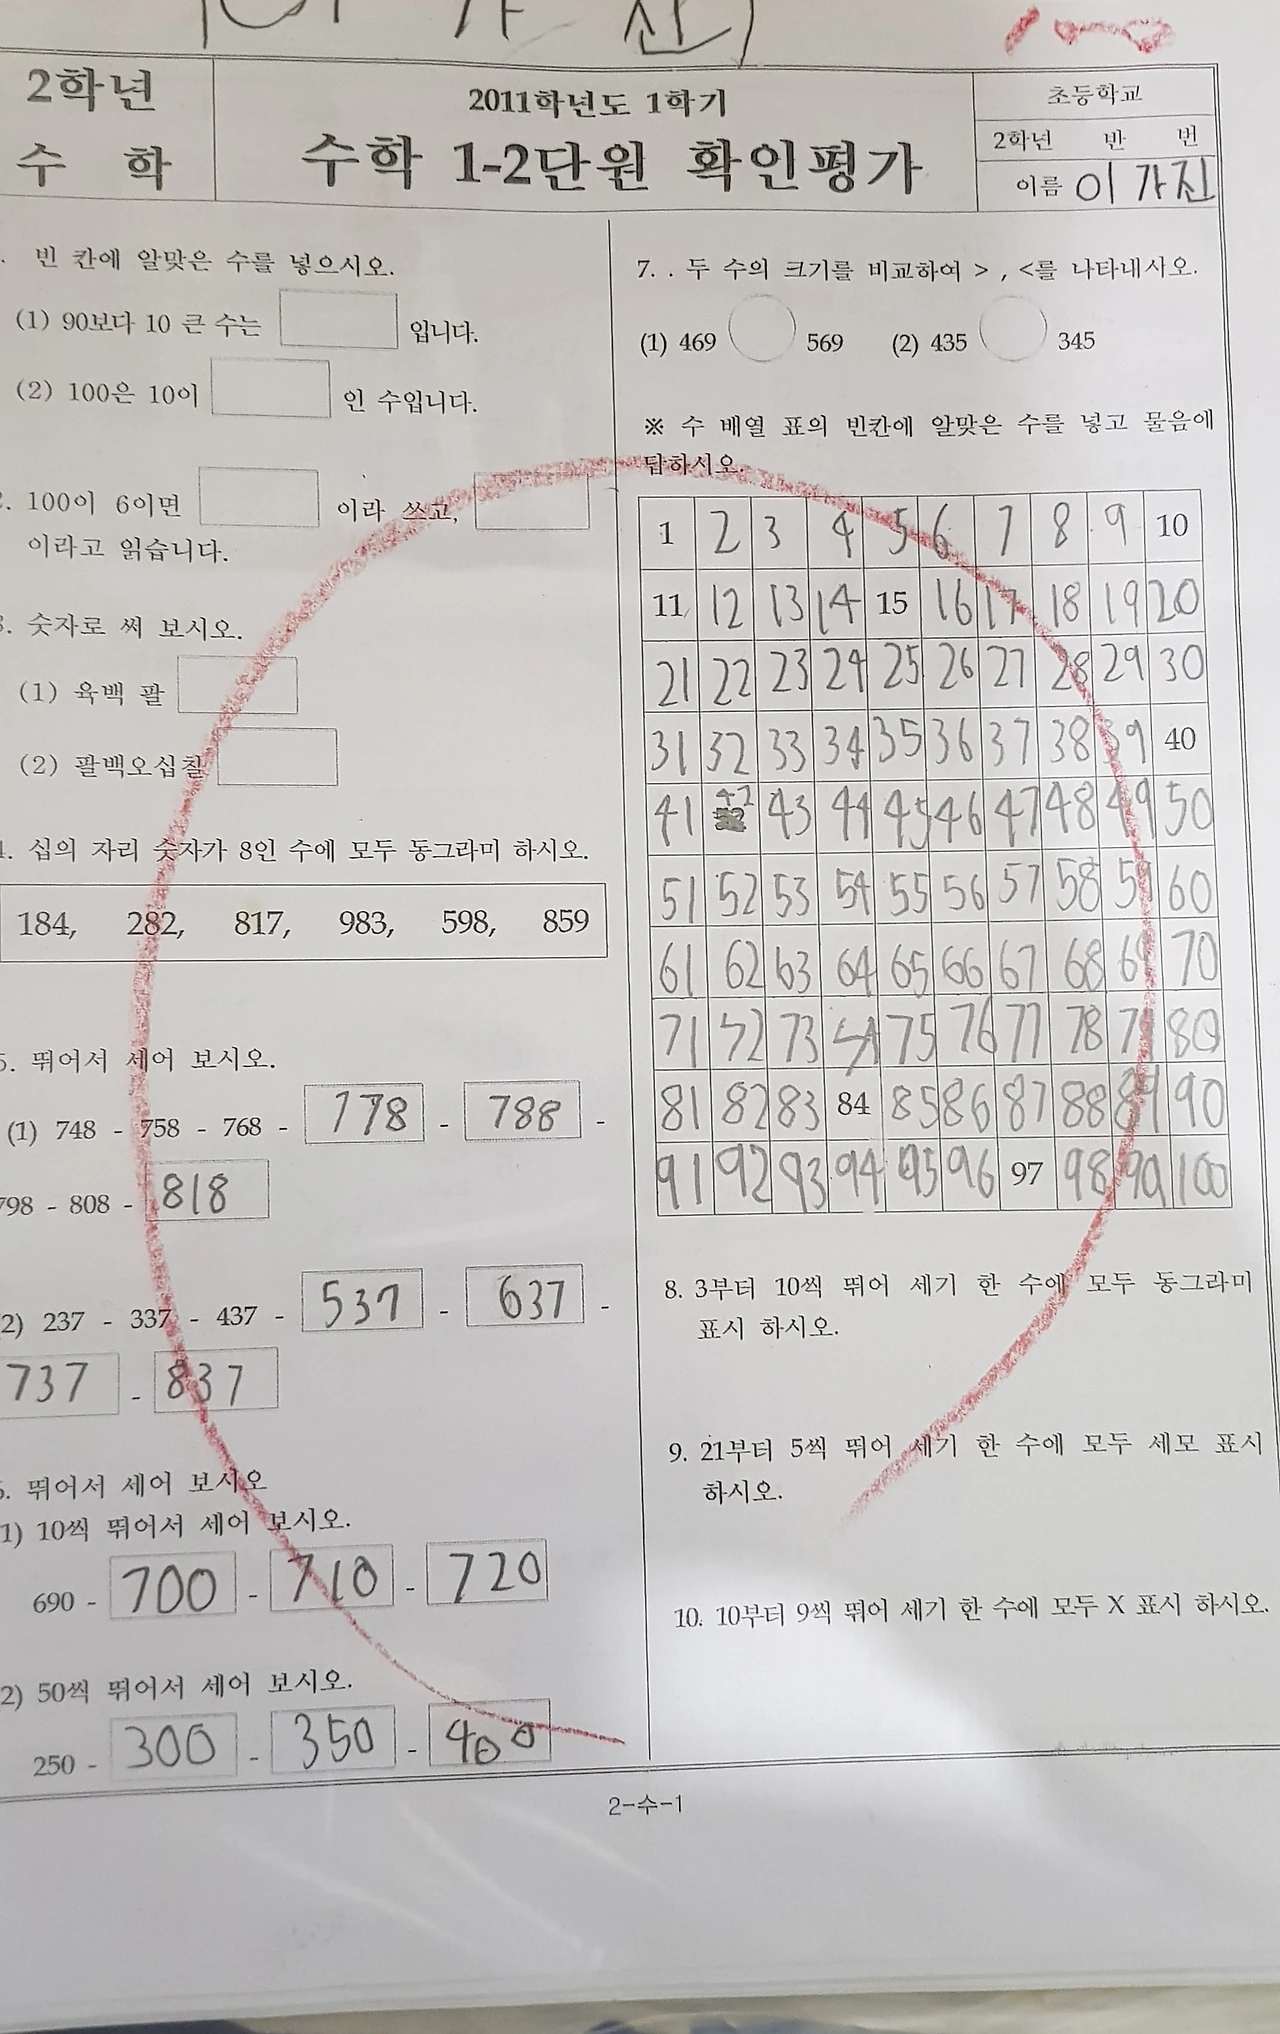 이 가 진
2학년
수 학
2011학년도 1학기
수학 1-2단원 확인평가
초등학교
2학년 반 번
이름 이 가진
. 빈 칸에 알맞은 수를 넣으시오.
(1) 90보다 10 큰 수는 입니다.
(2) 100은 10이 인 수입니다.
. 100이 6이면 이라 쓰고,
이라고 읽습니다.
. 숫자로 써 보시오.
(1) 육백 팔
(2) 팔백오십칠
. 십의 자리 숫자가 8인 수에 모두 동그라미 하시오.
184, 282, 817, 983, 598, 859
5. 뛰어서 세어 보시오.
(1) 748 - 758 - 768 - 778 - 788 -
798 - 808 - 818
2) 237 - 337 - 437 - 537 - 637 -
737 - 837
6. 뛰어서 세어 보시오
1) 10씩 뛰어서 세어 보시오.
690 - 700 - 710 - 720
2) 50씩 뛰어서 세어 보시오.
250 - 300 - 350 - 400
7. . 두 수의 크기를 비교하여 > , <를 나타내시오.
(1) 469 569 (2) 435 345
※ 수 배열 표의 빈칸에 알맞은 수를 넣고 물음에
답하시오.
1 2 3 4 5 6 7 8 9 10
11 12 13 14 15 16 17 18 19 20
21 22 23 24 25 26 27 28 29 30
31 32 33 34 35 36 37 38 39 40
41 42 43 44 45 46 47 48 49 50
51 52 53 54 55 56 57 58 59 60
61 62 63 64 65 66 67 68 69 70
71 72 73 74 75 76 77 78 79 80
81 82 83 84 85 86 87 88 89 90
91 92 93 94 95 96 97 98 99 100
8. 3부터 10씩 뛰어 세기 한 수에 모두 동그라미
표시 하시오.
9. 21부터 5씩 뛰어 세기 한 수에 모두 세모 표시
하시오.
10. 10부터 9씩 뛰어 세기 한 수에 모두 X 표시 하시오.
2-수-1